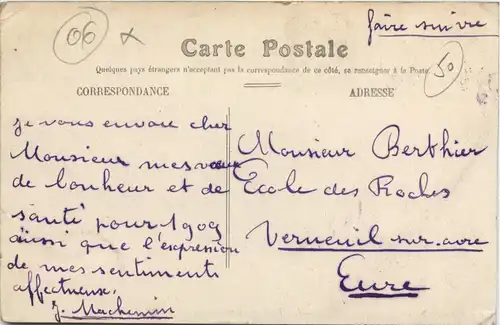 06 x
faire suivre
Carte Postale
Quelques pays étrangers n'acceptant pas la correspondance de ce côté, se renseigner à la Poste
50
CORRESPONDANCE
ADRESSE
je vous envoie cher
Monsieur mes vœux
de bonheur et de
santé pour 1909
aussi que l'expression
de mes sentiments
affectueux.
J. Machemin
Monsieur Berthier
Ecole des Roches
Verneuil-sur-avre
Eure